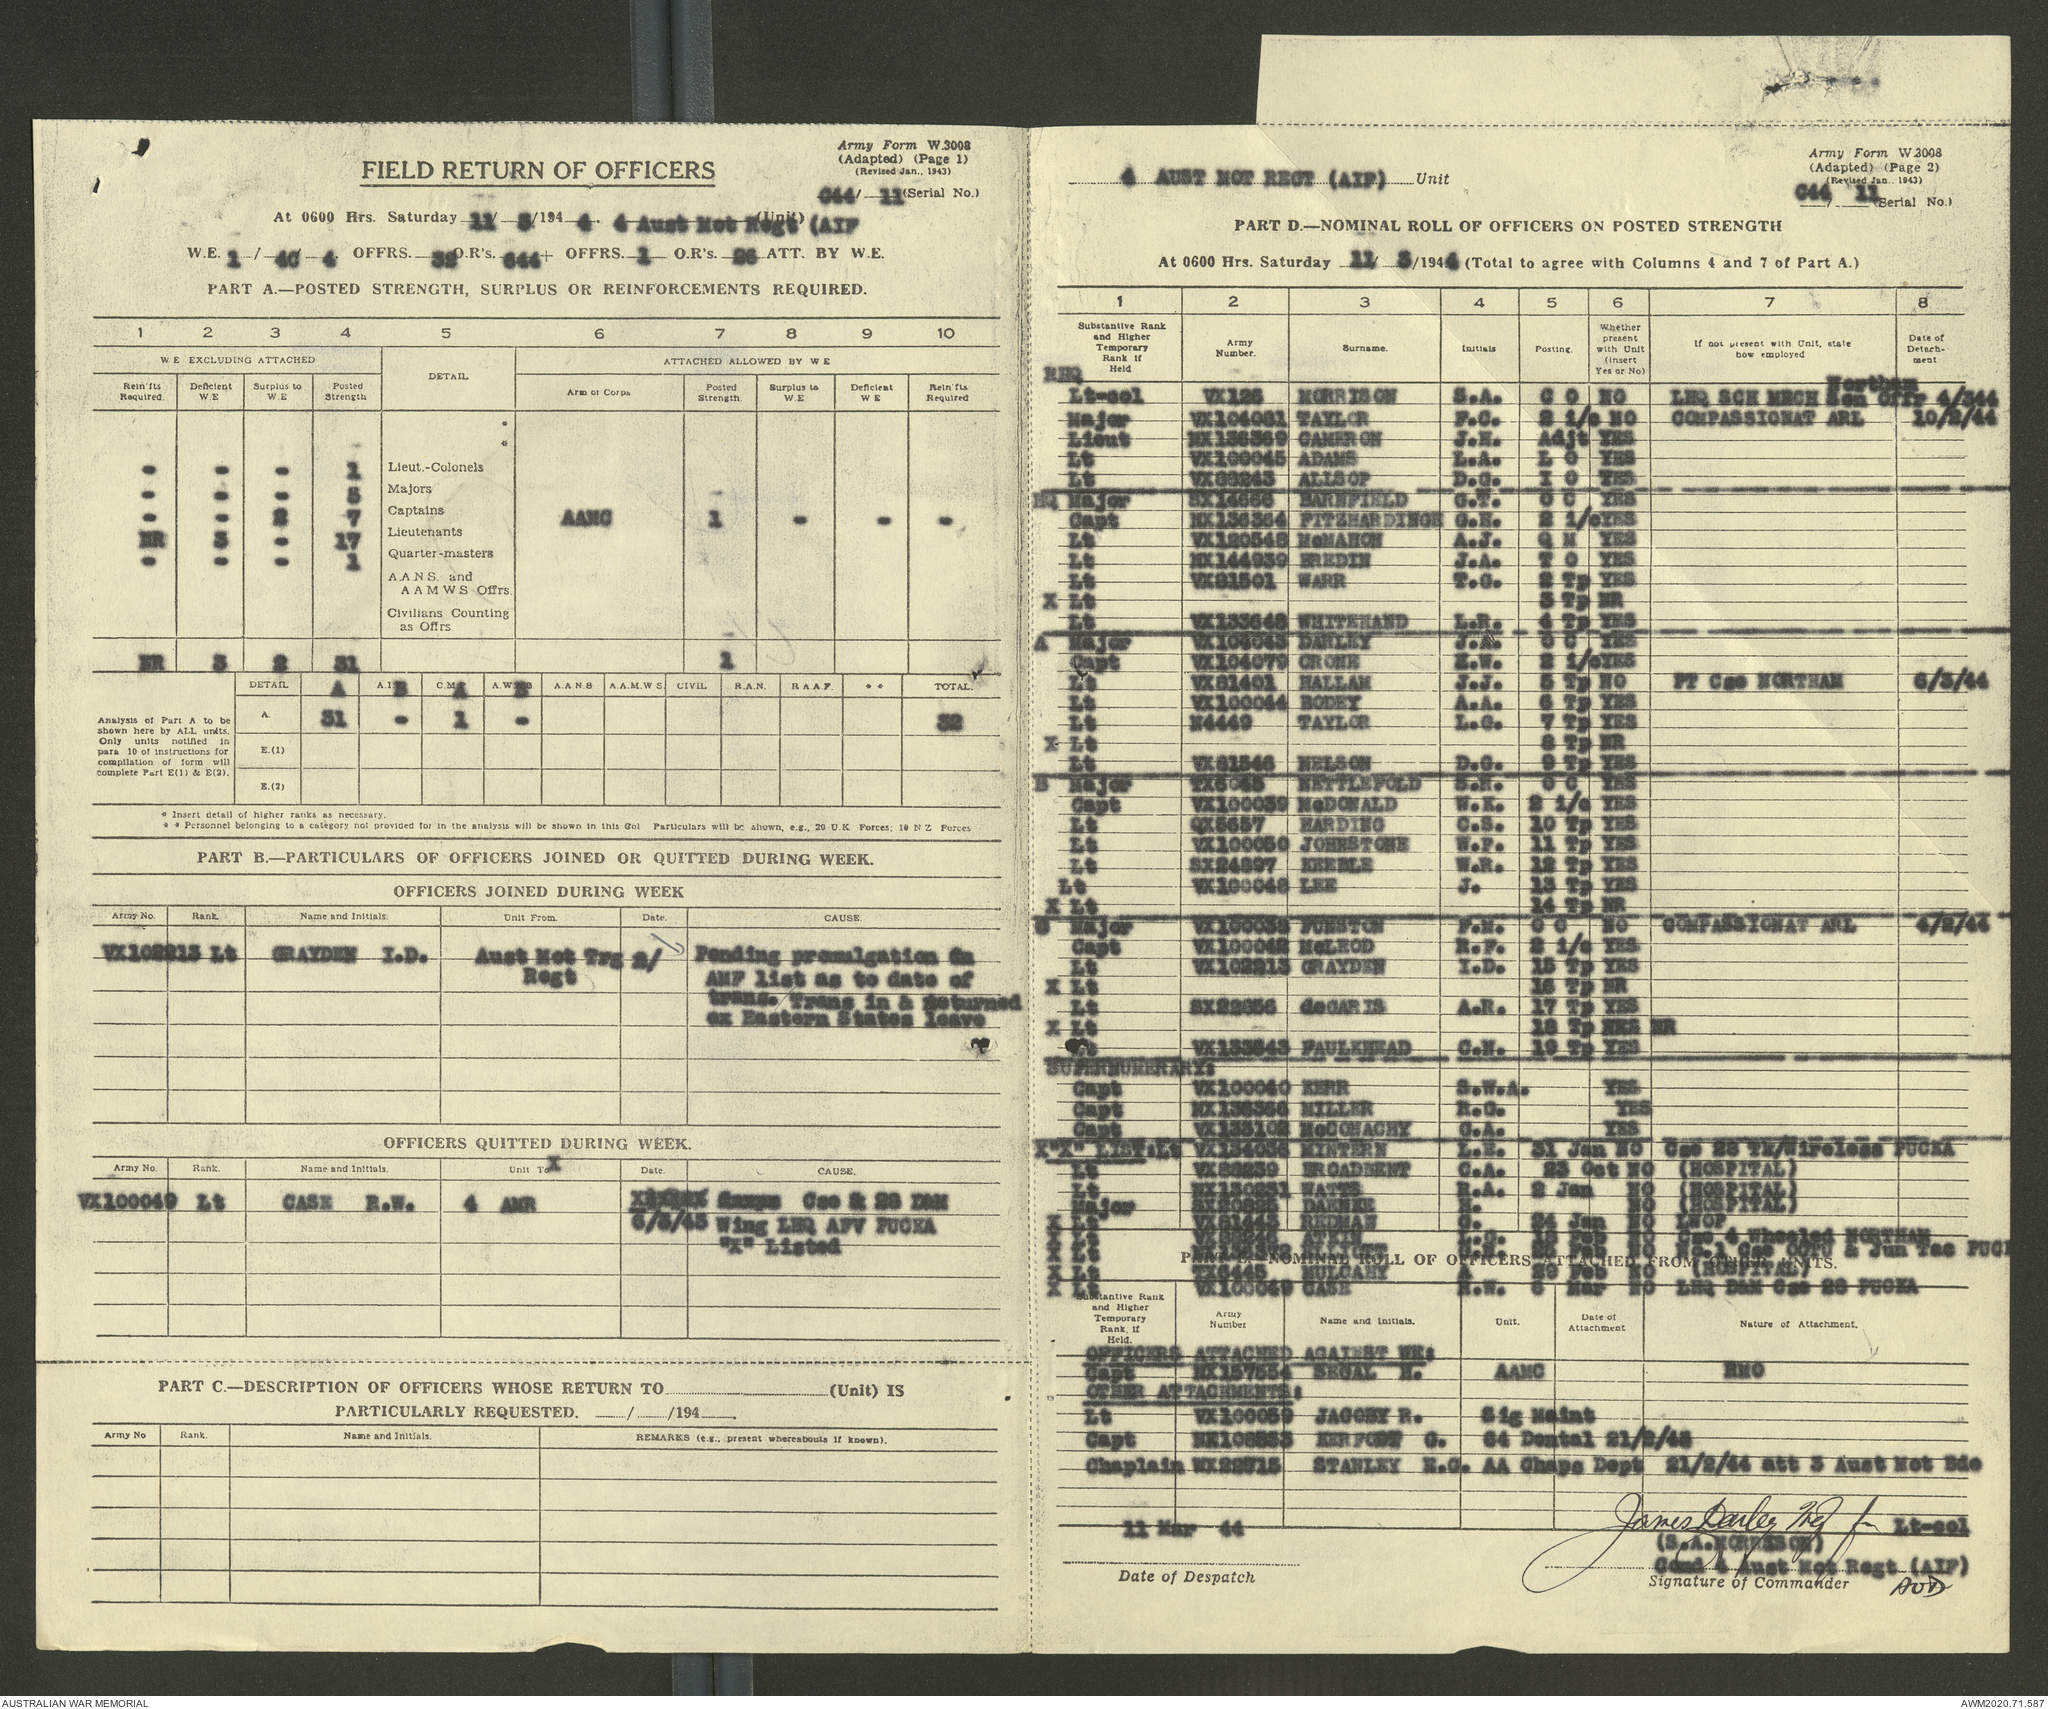 Army Form W.3008
(Adapted) (Page 1)
(Revised Jan., 1943)
FIELD RETURN OF OFFICERS
C44/ 11 (Serial No.)
At 0600 Hrs. Saturday 11/ 3/194 4. 4 Aust Mot Regt (AIF (Unit)
W.E. 1 / 4C / 4 OFFRS. 32 O.R's. 644+ OFFRS. 1 O.R's. 26 ATT. BY W.E.
PART A.—POSTED STRENGTH, SURPLUS OR REINFORCEMENTS REQUIRED.
1 2 3 4 5 6 7 8 9 10
W.E EXCLUDING ATTACHED DETAIL ATTACHED ALLOWED BY W E
Rein'fts Required. Deficient W.E Surplus to W.E Posted Strength Arm or Corps Posted Strength. Surplus to W.E Deficient W E Rein'fts Required
*
*
- - - 1 Lieut.-Colonels
- - - 5 Majors
- - 2 7 Captains AAMC 1 - - -
NR 3 - 17 Lieutenants
- - - 1 Quarter-masters
A.A.N.S. and A A M W S Offrs.
Civilians Counting as Offrs.
NR 3 2 31 1
DETAIL A A.I.B C.M.A A.W. A.A.N.S A.A.M.W.S. CIVIL R.A.N. R A A.F. * * TOTAL.
Analysis of Part A to be shown here by ALL units. Only units notified in para 10 of instructions for compilation of form will complete Part E(1) & E(2).
A. 31 - 1 - 32
E.(1)
E.(2)
* Insert detail of higher ranks as necessary.
* * Personnel belonging to a category not provided for in the analysis will be shown in this Col Particulars will be shown, e.g., 20 U.K Forces; 10 N Z Forces
PART B.—PARTICULARS OF OFFICERS JOINED OR QUITTED DURING WEEK.
OFFICERS JOINED DURING WEEK
Army No. Rank. Name and Initials. Unit From. Date. CAUSE.
VX102213 Lt GRAYDEN I.D. Aust Mot Trg Regt Pending promulgation in
AMF list as to date of
trans. Trans in & returned
ex Eastern States leave
OFFICERS QUITTED DURING WEEK.
Army No. Rank. Name and Initials. Unit To X Date. CAUSE.
VX100049 Lt CASE R.W. 4 AMR Cse & 28 D&M
6/3/43 Wing LHQ AFV PUCKA
"X" Listed
PART C.—DESCRIPTION OF OFFICERS WHOSE RETURN TO (Unit) IS
PARTICULARLY REQUESTED. / /194 .
Army No Rank. Name and Initials. REMARKS (e.g., present whereabouts if known).
4 AUST MOT REGT (AIF) Unit
Army Form W.3008
(Adapted) (Page 2)
(Revised Jan., 1943)
C44 / 11 (Serial No.)
PART D.—NOMINAL ROLL OF OFFICERS ON POSTED STRENGTH
At 0600 Hrs. Saturday 11/ 3/1944 (Total to agree with Columns 4 and 7 of Part A.)
1 2 3 4 5 6 7 8
Substantive Rank and Higher Temporary Rank if Held Army Number. Surname. Initials Posting. Whether present with Unit (insert Yes or No) If not present with Unit, state how employed Date of Detachment
RHQ
Lt-col VX126 MORRISON S.A. C O NO LHQ SCH MECH Sen Offr Northam 4/344
Major VX104081 TAYLOR F.C. 2 i/c NO COMPASSIONAT ARL 10/2/44
Lieut NX136369 CAMERON J.H. Adjt YES
Lt VX100045 ADAMS L.A. L O YES
Lt VX88243 ALLSOP D.G. I O YES
HQ Major SX14666 BARNFIELD G.T. O C YES
Capt NX136364 FITZHARDINGE G.H. 2 i/c YES
Lt VX120548 McMAHON A.J. Q M YES
Lt NX144939 BREDIN J.A. T O YES
Lt VX81501 WARR T.G. 2 Tp YES
X Lt 3 Tp NR
Lt VX133648 WHITEHAND L.R. 4 Tp YES
A Major VX104043 DARLEY J.A. O C YES
Capt VX104079 CRONE E.W. 2 i/c YES
Lt VX81401 HALLAM J.J. 5 Tp NO PT Cse NORTHAM 6/3/44
Lt VX100044 BODEY A.A. 6 Tp YES
Lt N4449 TAYLOR L.G. 7 Tp YES
X Lt 8 Tp NR
Lt VX81546 NELSON D.G. 9 Tp YES
B Major TX6045 NETTLEFOLD S.R. O C YES
Capt VX100039 McDONALD W.K. 2 i/c YES
Lt QX5657 HARDING C.S. 10 Tp YES
Lt VX100050 JOHNSTONE W.P. 11 Tp YES
Lt SX24897 KEEBLE W.R. 12 Tp YES
Lt VX100048 LEE J. 13 Tp YES
X Lt 14 Tp NR
C Major VX100038 FUNSTON F.N. O C NO COMPASSIONAT ARL 4/2/44
Capt VX100042 McLEOD R.F. 2 i/c YES
Lt VX102213 GRAYDEN I.D. 15 Tp YES
X Lt 16 Tp NR
Lt SX22656 deGARIS A.R. 17 Tp YES
X Lt 18 Tp NR
VX133843 FAULKHEAD C.N. 19 Tp YES
SUPERNUMERARY:
Capt VX100040 KERR S.W.A. YES
Capt NX136366 MILLER R.G. YES
Capt VX133102 McCONACHY G.A. YES
X"X" LIST: Lt VX134036 MINTERN L.E. 31 Jan NO Cse 28 Tk/Wireless PUCKA
Lt VX88239 BROADBENT C.A. 23 Oct NO (HOSPITAL)
Lt NX130231 WATTS R.A. 2 Jan NO (HOSPITAL)
Major SX20625 DAENKE H. NO (HOSPITAL)
X Lt VX81443 REDMAN G. 24 Jan NO LWOP
X Lt ATKIN L.G. Feb NO Cse 4 Wheeled NORTHAM
X Lt NO No.1 Cse OCTU & Jun Tac PUCK
PART E.—NOMINAL ROLL OF OFFICERS ATTACHED FROM OTHER UNITS.
X Lt VX6445 MULCAHY A 29 Feb NO (HOSPITAL)
X Lt VX100049 CASE R.W. 6 Mar NO LHQ D&M Cse 28 PUCKA
Substantive Rank and Higher Temporary Rank, if Held. Army Number Name and Initials. Unit. Date of Attachment Nature of Attachment.
OFFICERS ATTACHED AGAINST WE:
Capt NX157554 SEGAL H. AAMC RMO
OTHER ATTACHMENTS:
Lt VX100059 JACOBY R. Sig Maint
Capt NX108553 KERFOOT G. 64 Dental 21/2/43
Chaplain WX22715 STANLEY E.G. AA Chaps Dept 21/2/44 att 3 Aust Mot Bde
11 Mar 44
Date of Despatch
James Darley Maj for Lt-col
(S.A.MORRISON)
Comd 4 Aust Mot Regt (AIF)
Signature of Commander
AUSTRALIAN WAR MEMORIAL
AWM2020.71.587